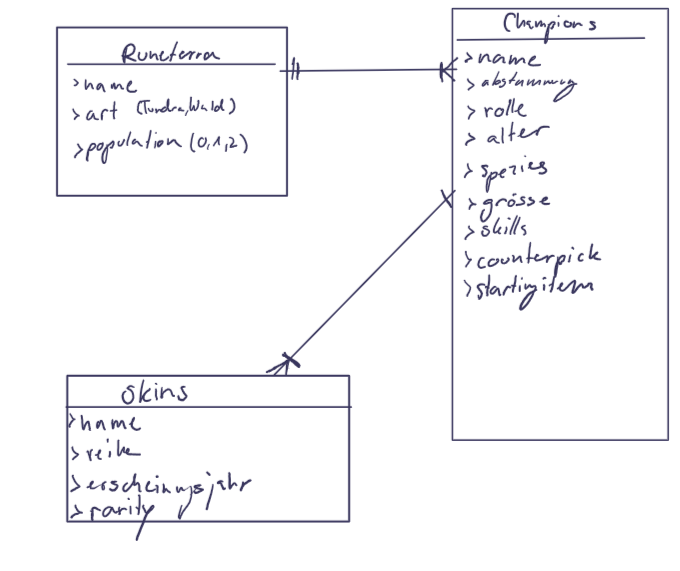 Runeterra
>name
>art (Tundra,Wald)
>population (0,1,2)
Champions
>name
>abstammung
>rolle
>alter
>spezies
>grösse
>skills
>counterpick
>startingitem
Skins
>name
>reihe
>erscheinungsjahr
>rarity